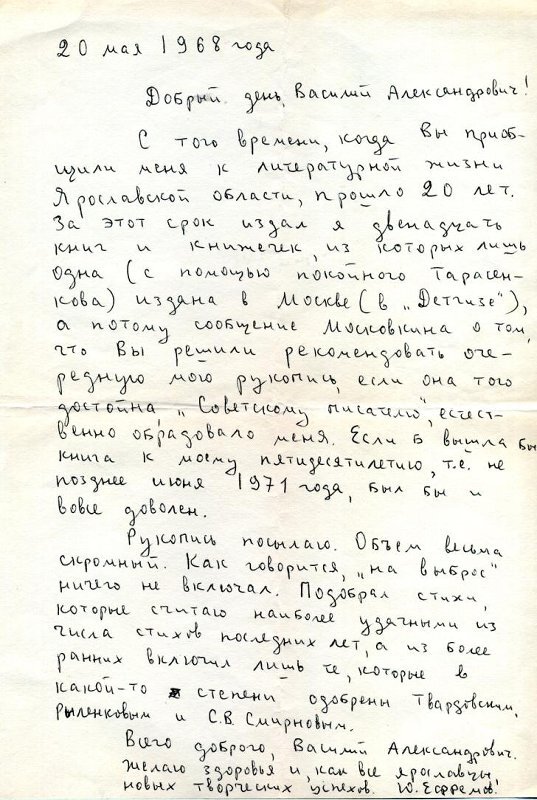 20 мая 1968 года
Добрый день, Василий Александрович!
С того времени, когда Вы приоб-
щили меня к литературной жизни
Ярославской области, прошло 20 лет.
За этот срок издал я двенадцать
книг и книжечек, из которых лишь
одна (с помощью покойного Тарасен-
кова) издана в Москве (в „Детгизе"),
а потому сообщение Московкина о том,
что Вы решили рекомендовать оче-
редную мою рукопись, если она того
достойна, „Советскому писателю", естест-
венно обрадовало меня. Если б вышла бы
книга к моему пятидесятилетию, т.е. не
позднее июня 1971 года, был бы и
вовсе доволен.
Рукопись посылаю. Объем весьма
скромный. Как говорится, „на выброс"
ничего не включал. Подобрал стихи,
которые считаю наиболее удачными из
числа стихов последних лет, а из более
ранних включил лишь те, которые в
какой-то степени одобрены Твардовским,
Рыленковым и С.В. Смирновым.
Всего доброго, Василий Александрович.
Желаю здоровья и, как все ярославцы,
новых творческих успехов. Ю. Ефремов.